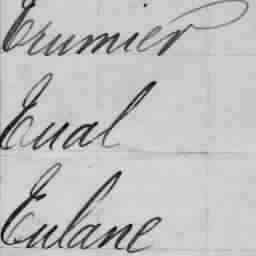 Erumier
Eual
Eulane